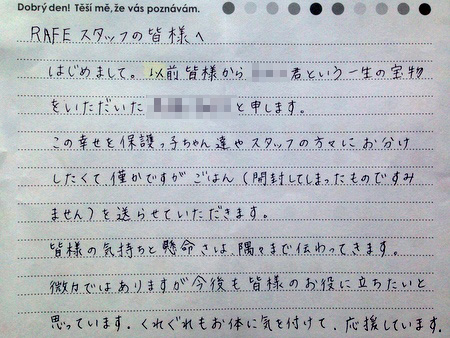 Dobrý den! Těší mě, že vás poznávám.
RAFEスタッフの皆様へ
はじめまして。以前皆様から 君という一生の宝物
をいただいた と申します。
この幸せを保護っ子ちゃん達やスタッフの方々にお分け
したくて、僅かですがごはん(開封してしまったものですみ
ません)を送らせていただきます。
皆様の気持ちと懸命さは、隅々まで伝わってきます。
微力ではありますが今後も皆様のお役に立ちたいと
思っています。くれぐれもお体に気を付けて、応援しています。